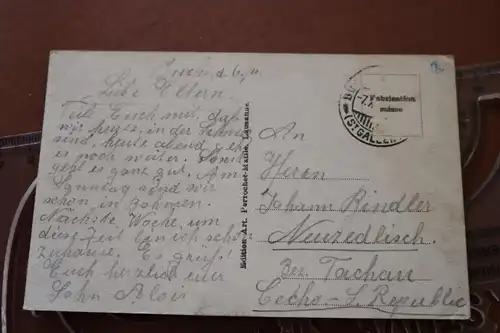 d. 6.
Liebe Eltern.
Teile Euch mit, daß
wir heute, in der Schweiz
sind, heute abend geht
es noch weiter. Sonst
geht es ganz gut. Am
Sonntag sind wir
schon in
Nächste Woche, um
diese Zeit bin ich schon
Zuhause. Es grüßt
Euch herzlich euer
Sohn Alois
Edition-Art. Perrochet-Matile, Lausanne.
Fabrication
suisse
-7.
(ST. GALLEN)
An
Herrn
Johann Rindler
Neuzedlisch.
Bez. Tachau
Čecho-S. Republic